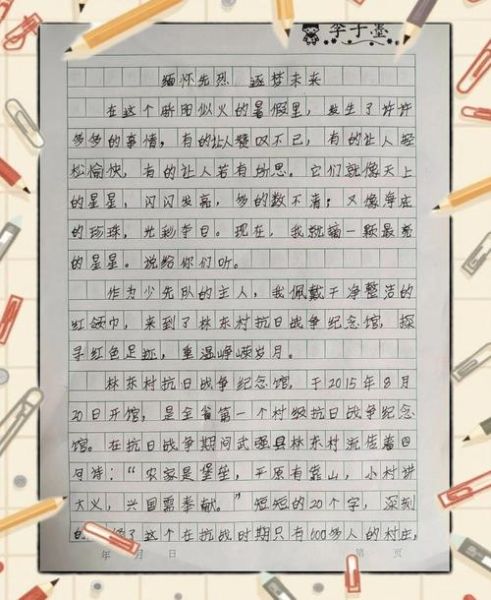 李子墨
缅怀先烈 逐梦未来
在这个骄阳似火的暑假里，发生了许许
多多的事情，有的让人赞叹不已，有的让人轻
松愉快，有的让人若有所思。它们就像天上
的星星，闪闪发亮，多的数不清；又像海底
的珍珠，光彩夺目。现在，我就摘一颗最亮
的星星。说给你们听。
作为少先队的主人，我佩戴干净整洁的
红领巾，来到了林东村抗日战争纪念馆，探
寻红色足迹，重温峥嵘岁月。
林东村抗日战争纪念馆，于2015年8月
20日开馆，是全省第一个村级抗日战争纪念
馆。在抗日战争期间武强县林东村流传着四
句诗：“农家是堡垒，平原有靠山，小村讲
大义，兴国需奉献。”短短的20个字，深刻
了这个在抗战时期只有600多人的村庄，
年 月 日 第 页